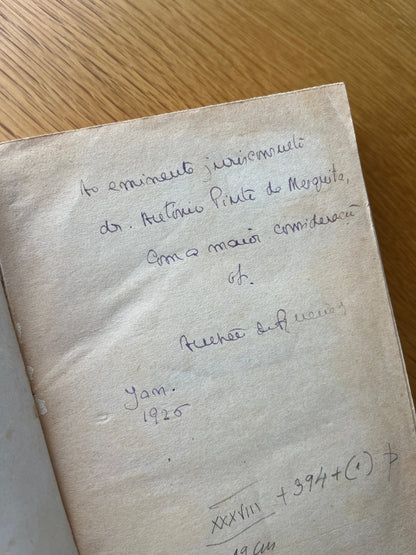 Ao eminente jurisconsulto
dr. António Pinto de Mesquita,
Com a maior consideração
of.
de
Jan.
1926
XXXVIII + 394 + (1) p
19 cm